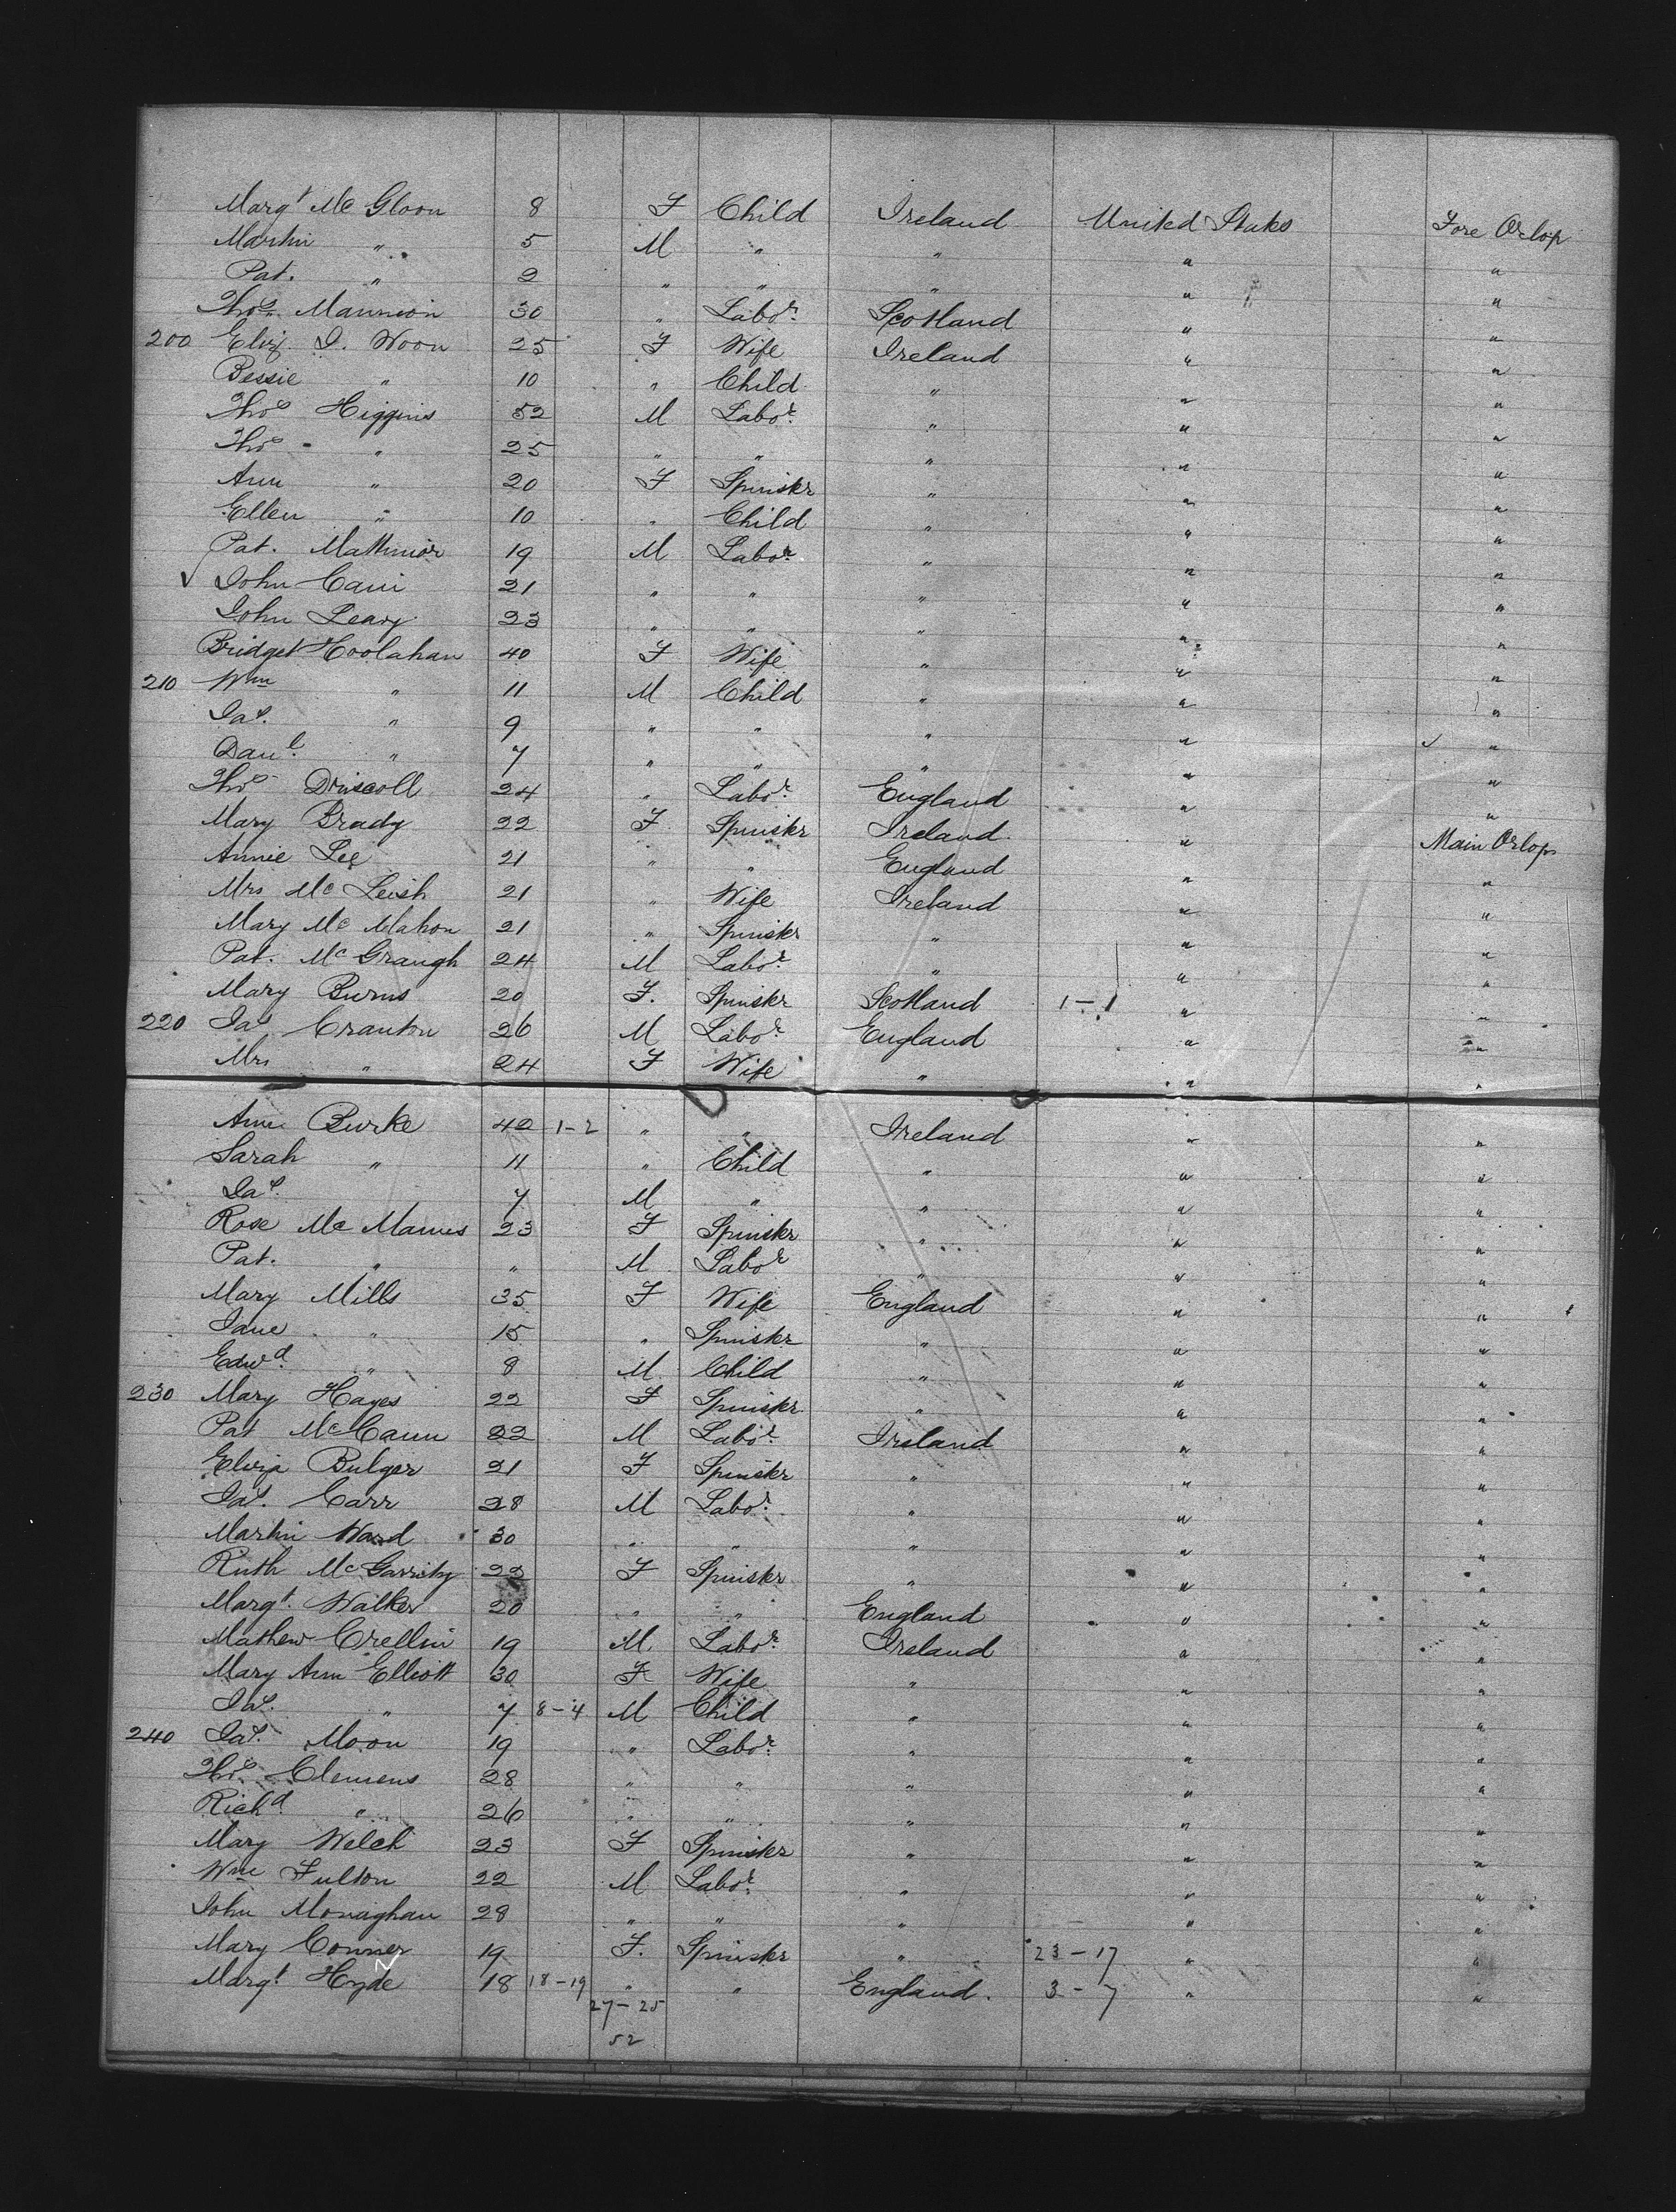 Margt Mc Gloon 8 F Child Ireland United States Fore Orlop
Martin " 5 M " " " "
Pat. " 2 " " " " "
Thos Mannion 30 " Labor. Scotland " "
200 Eliz J. Woon 25 F Wife Ireland " "
Bessie " 10 " Child " " "
Thos Higgins 52 M Labor. " " "
Thos " 25 " " " " "
Ann " 20 F Spinster " " "
Ellen " 10 " Child " " "
Pat. Mattimor 19 M Labor. " " "
✓ John Cain 21 " " " " "
John Leary 23 " " " " "
Bridget Hoolahan 40 F Wife " " "
210 Wm " 11 M Child " " "
Jas. " 9 " " " " "
Danl. " 7 " " " " ✓ "
Thos Driscoll 24 " Labor. England " "
Mary Brady 22 F Spinster Ireland " Main Orlop
Annie Lee 21 " " England " "
Mrs Mc Leish 21 " Wife Ireland " "
Mary Mc Mahon 21 " Spinster " " "
Pat. McGraugh 24 M Labor. " " "
Mary Burns 20 F. Spinster Scotland 1-1 " "
220 Jas Cranton 26 M Labor. England " "
Mrs " 24 F Wife " " "
Ann Burke 42 1-2 " " Ireland " "
Sarah " 11 " Child " " "
Jas. 7 M " " " "
Rose Mc Manus 23 F Spinster " " "
Pat. " " M Labor " " "
Mary Mills 35 F Wife England " "
Jane " 15 " Spinster " " "
Edwd. " 8 M Child " " "
230 Mary Hayes 22 F Spinster " " "
Pat McCann 22 M Labor. Ireland " "
Eliza Bulger 21 F Spinster " " "
Jas. Carr 28 M Labor. " " "
Martin Ward 30 " " " " "
Ruth McGarrity 22 F Spinster " " "
Margt. Walker 20 " " England " "
Mathew Crellin 19 M Labor. Ireland " "
Mary Ann Elliott 30 F Wife " " "
Jas. " 7 8-4 M Child " " "
240 Jas. Moon 19 " Labor. " " "
Thos. Clemens 28 " " " " "
Richd. " 26 " " " " "
Mary Welch 23 F Spinster " " "
Wm Fulton 22 M Labor. " " "
John Monaghan 28 " " " " "
Mary Conner 19 F. Spinster " 23-17 " "
Margt Hyde 18 18-19 " " England. 3-7 " "
27-25
52